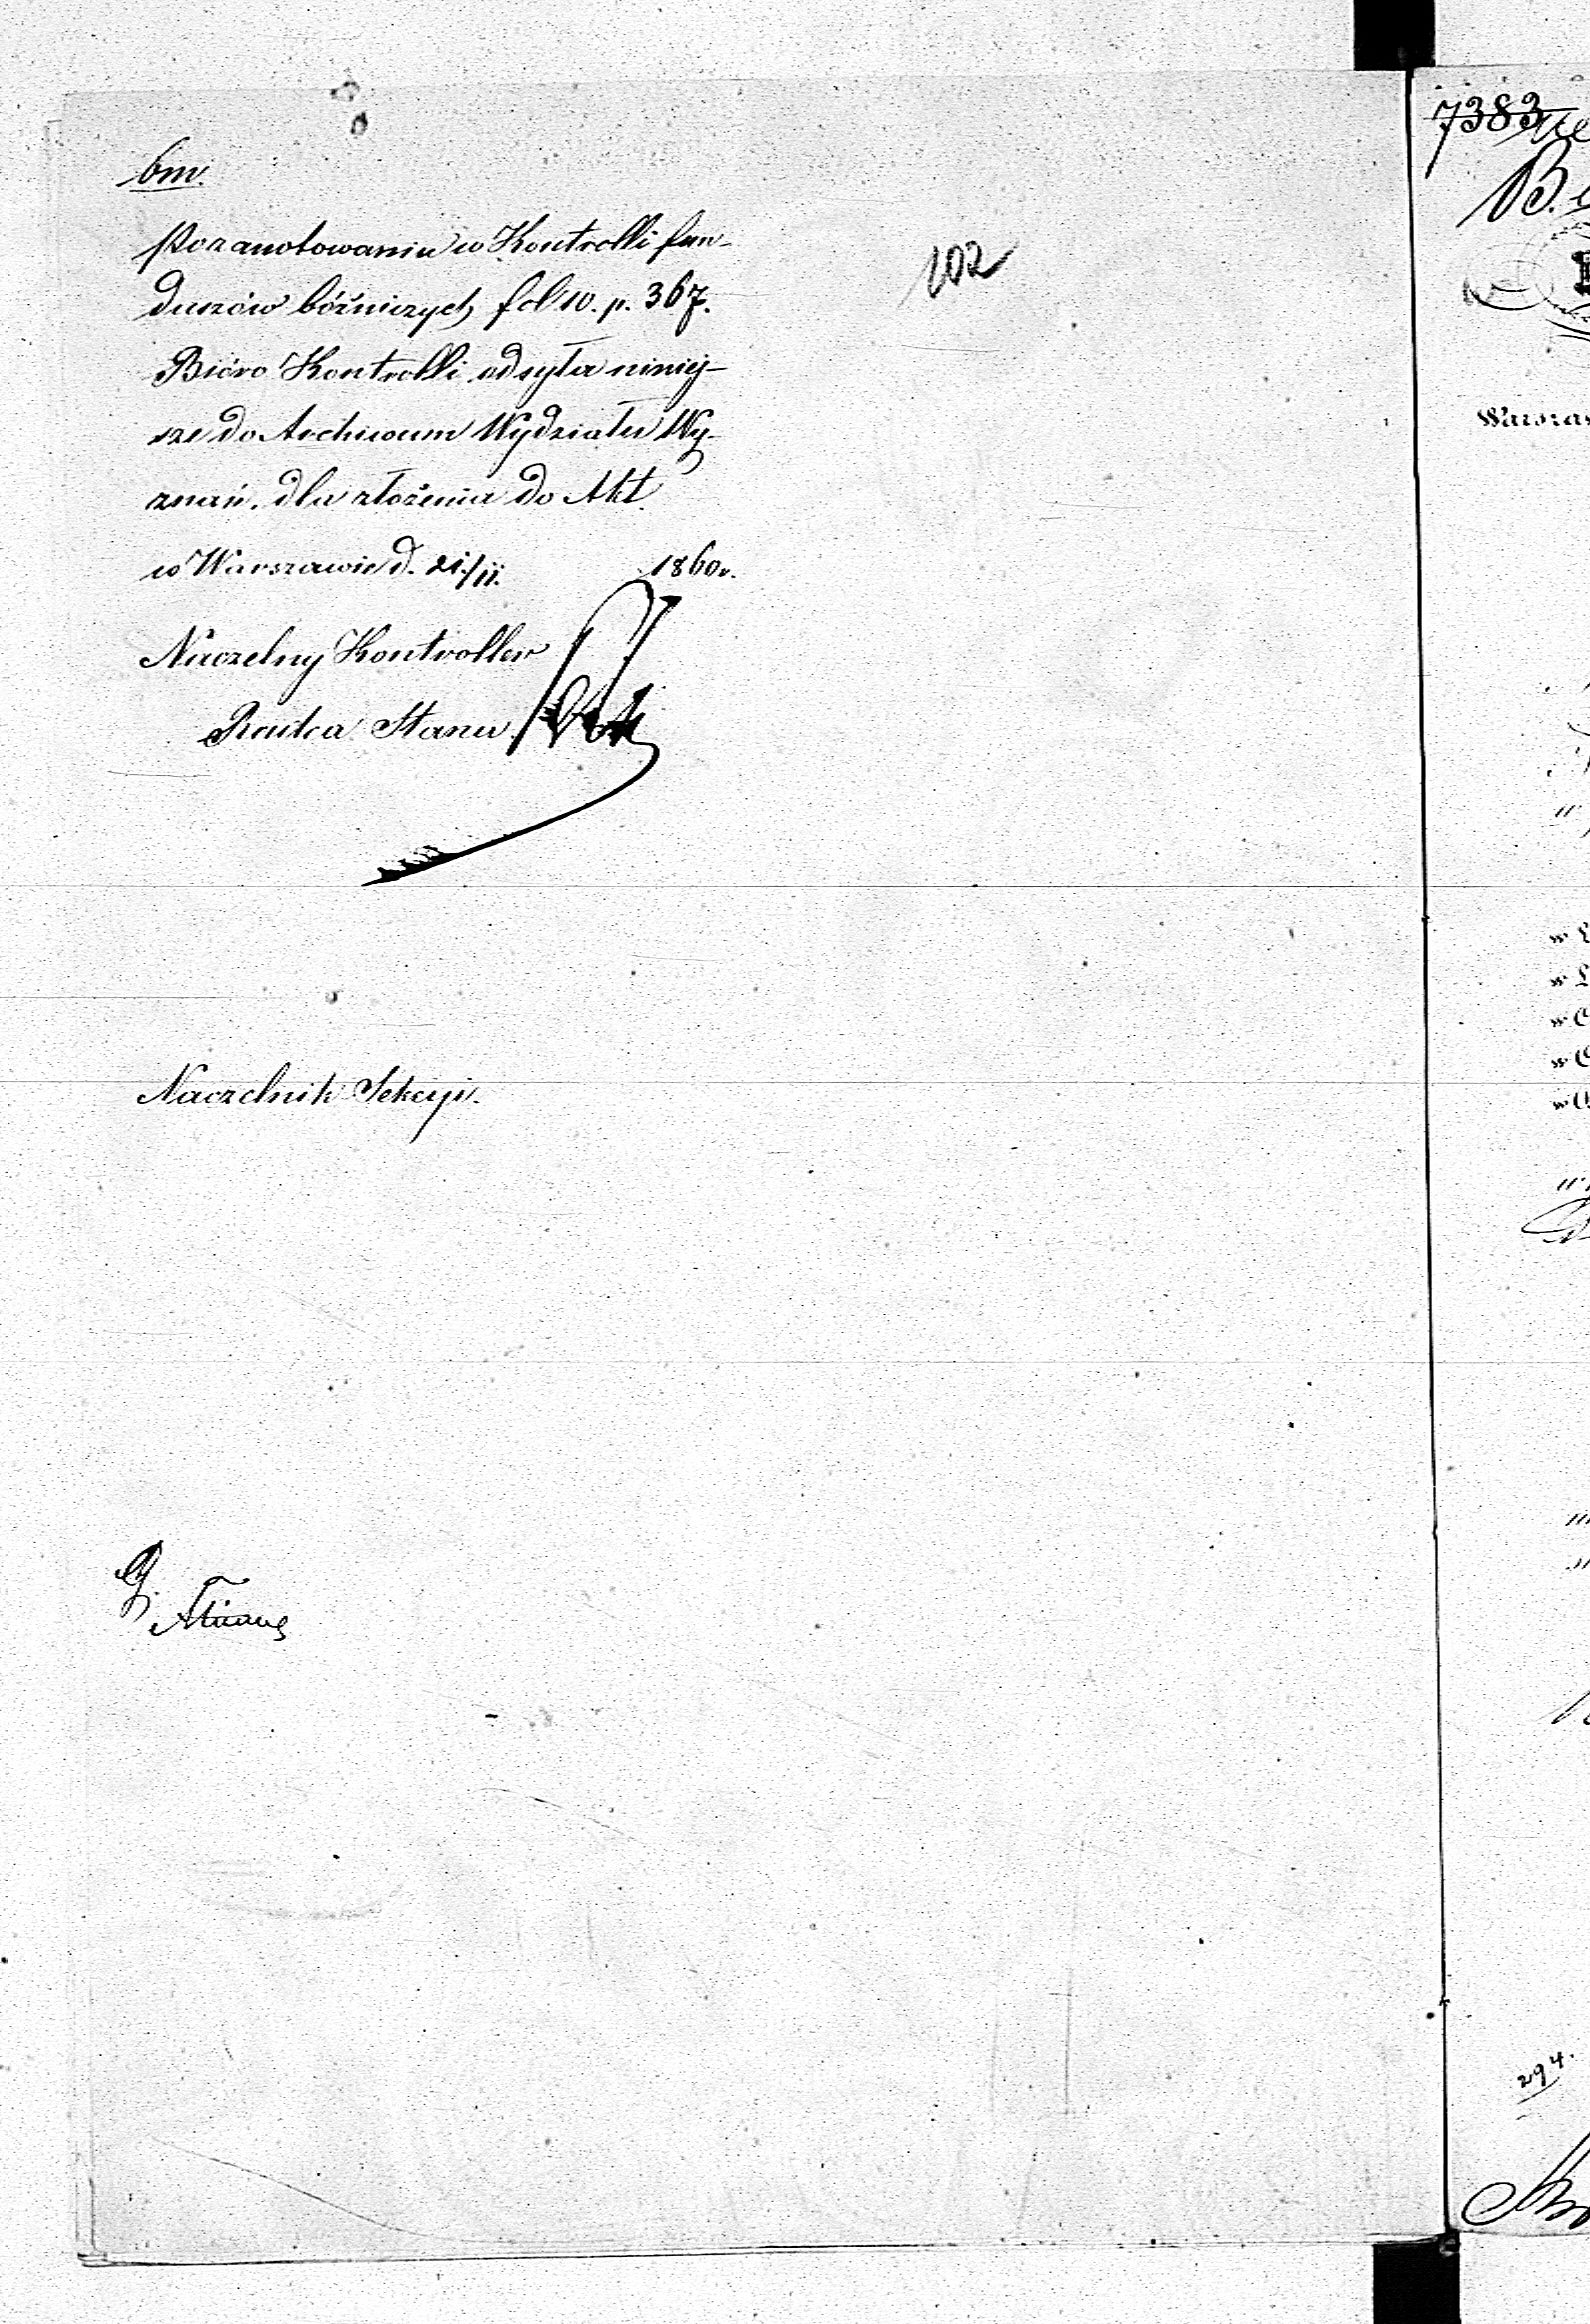 bm.
102
Po zanotowaniu w Kontrolli fun-
duszów bóżniczych fol 10. p. 367.
Bióro Kontrolli odsyła niniej-
sze do Archiwum Wydziału Wy-
znań, dla złożenia do Akt.
w Warszawie d. 21/11. 1860 r.
Naczelny Kontroller
Radca Stanu
Naczelnik Sekcyi.
7383
B.
Warsza
294.